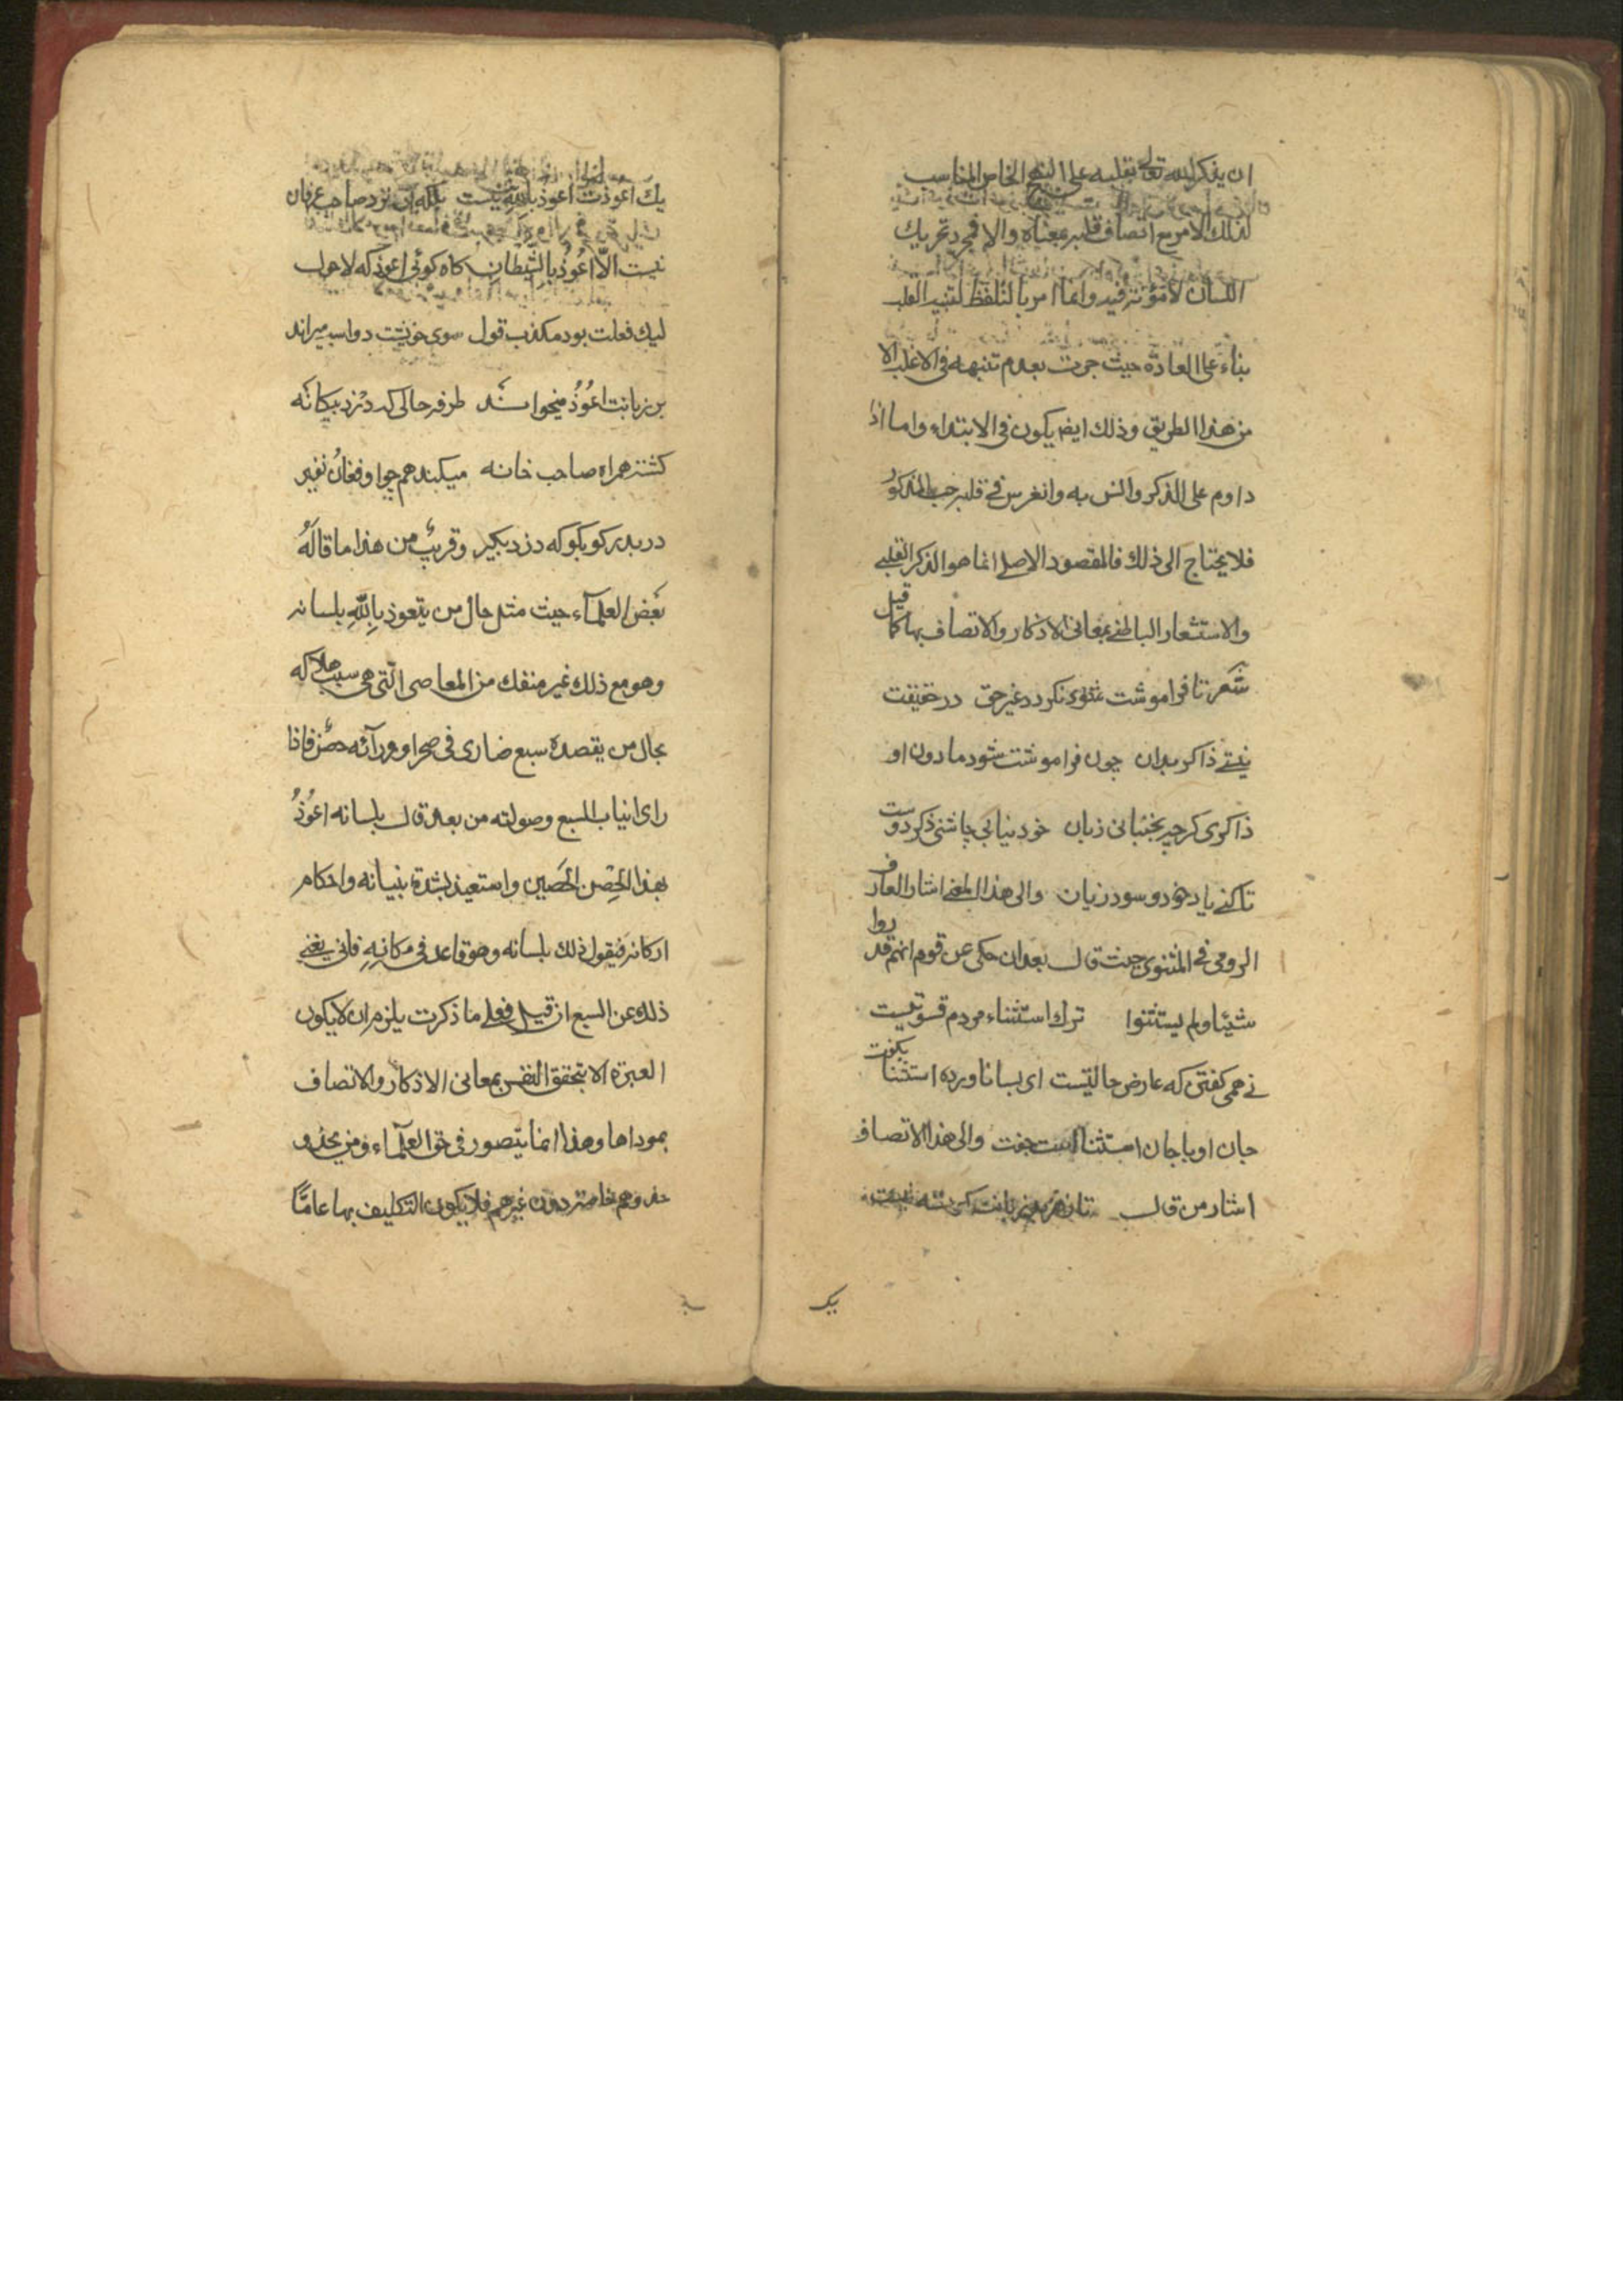 ان يذكر الله تعالى بقلبه على النهج الخاص المناسب
لذلك الامر مع اتصاف قلبه بمعناه والا فمجرد تحريك
اللسان لا مؤثر فيه وانما امر بالتلفظ لتنبيه القلب
بناء على العادة حيث جرت بعدم تنبهه فى الاغلب الا
من هذا الطريق وذلك ايضا يكون فى الابتداء واما اذا
داوم على الذكر وانس به وانغرس فى قلبه حب المذكور
فلا يحتاج الى ذلك فالمقصود الاصلى انما هو الذكر القلبى
والاستشعار الباطنى بمعانى الاذكار والاتصاف بها كما قيل
شعر تا فراموشت نكردد غير حق در حقيقت
نيستى ذاكر بدان چون فراموشت شود ما دون او
ذاكرى كرچه بجنبانى زبان خود نيابى چاشنى ذكر دوست
تا كنى ياد خود و سود و زيان والى هذا المعنى اشار العارف
الرومى فى المثنوى حيث قال بعد ان حكى عن قوم انهم قد روا
شيئا ولم يستثنوا ترك استثناء مردم قسوتيست
نى همى كفتن كه عارض حالتيست اى بسا ناورده استثنا بكفت
جان او با جان استثناست جفت والى هذا الاتصاف
اشار من قال
يك
يك اعوذت اعوذ بالله نيست بلكه آن نزد صاحب عرفان
نيست الّا اعُوذُ بالشيطان كاه كوئى اعوذ كه لاحول
ليك فعلت بود مكذب قول سوى خويشت دو اسبه ميراند
بر زبانت اعُوذُ ميخواند طرفه حالى كه دزد بيكانه
كشته همراه صاحب خانه ميكند همچو او فغان نفير
در بدر كو بكو كه دزد بكير وقريبٌ من هذا ما قالهُ
بعض العلمآء حيث مثل حال من يتعوذ باللهِ بلسانه
وهو مع ذلك غير منفك من المعاصى الّتى هى سبب هلاكه
بحال من يقصده سبع ضارى فى صحرا و ورآئه حصن فاذا
راى انياب السبع وصولته من بعد قال بلسانه اعُوذُ
بهذا الحِصن الحَصين واستعيذ بشدة بنيانه واحكام
اركانه فيقول ذلك بلسانه وهو قاعد فى مكانِهِ فانى يغنى
ذلك عن السبع ان قيل فعلى ما ذكرت يلزم ان لا يكون
العبرة الا بتحقق النفس بمعانى الاذكار والاتصاف
بموداها وهذا انما يتصور فى حق العلمآء ومن يحذو
حذوهم خاصة دون غيرهم فلا يكون التكليف بها عامًّا